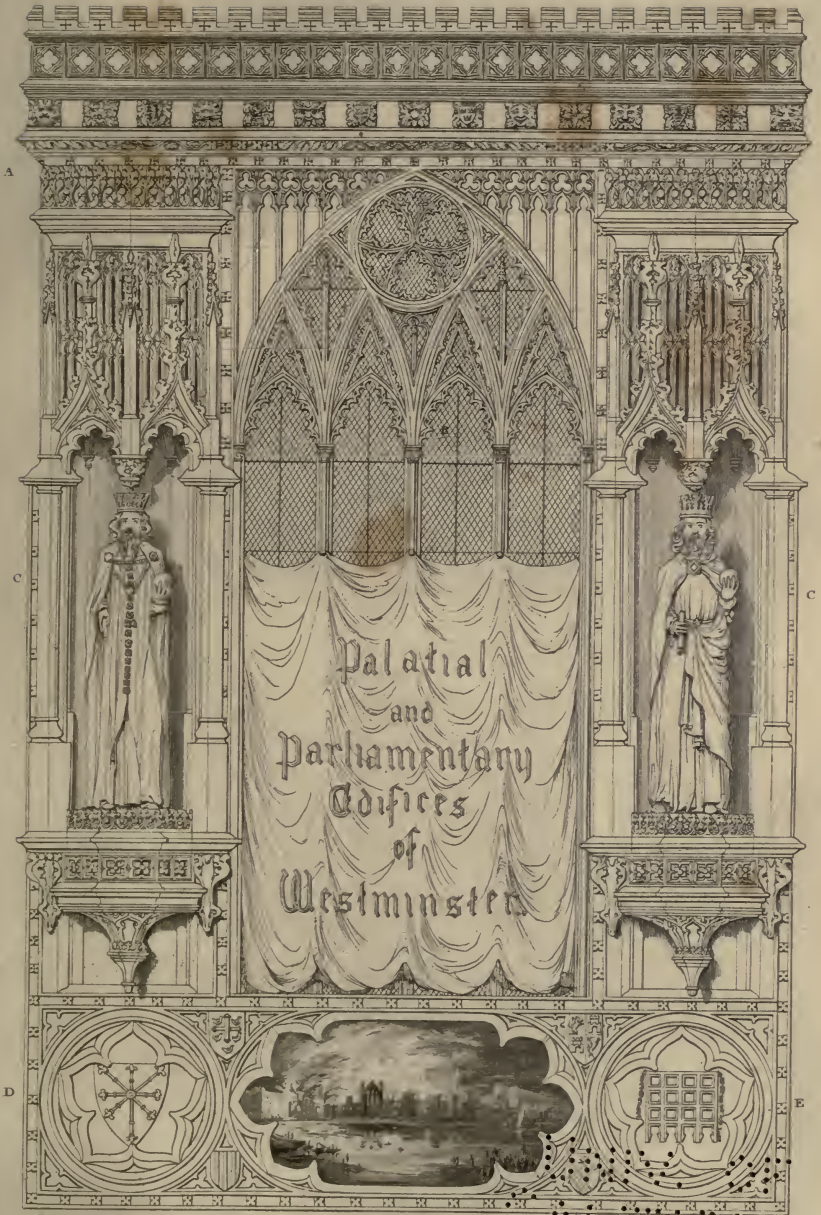 A
B
C
C
Palatial
and
Parliamentary
Edifices
of
Westminster.
D
E